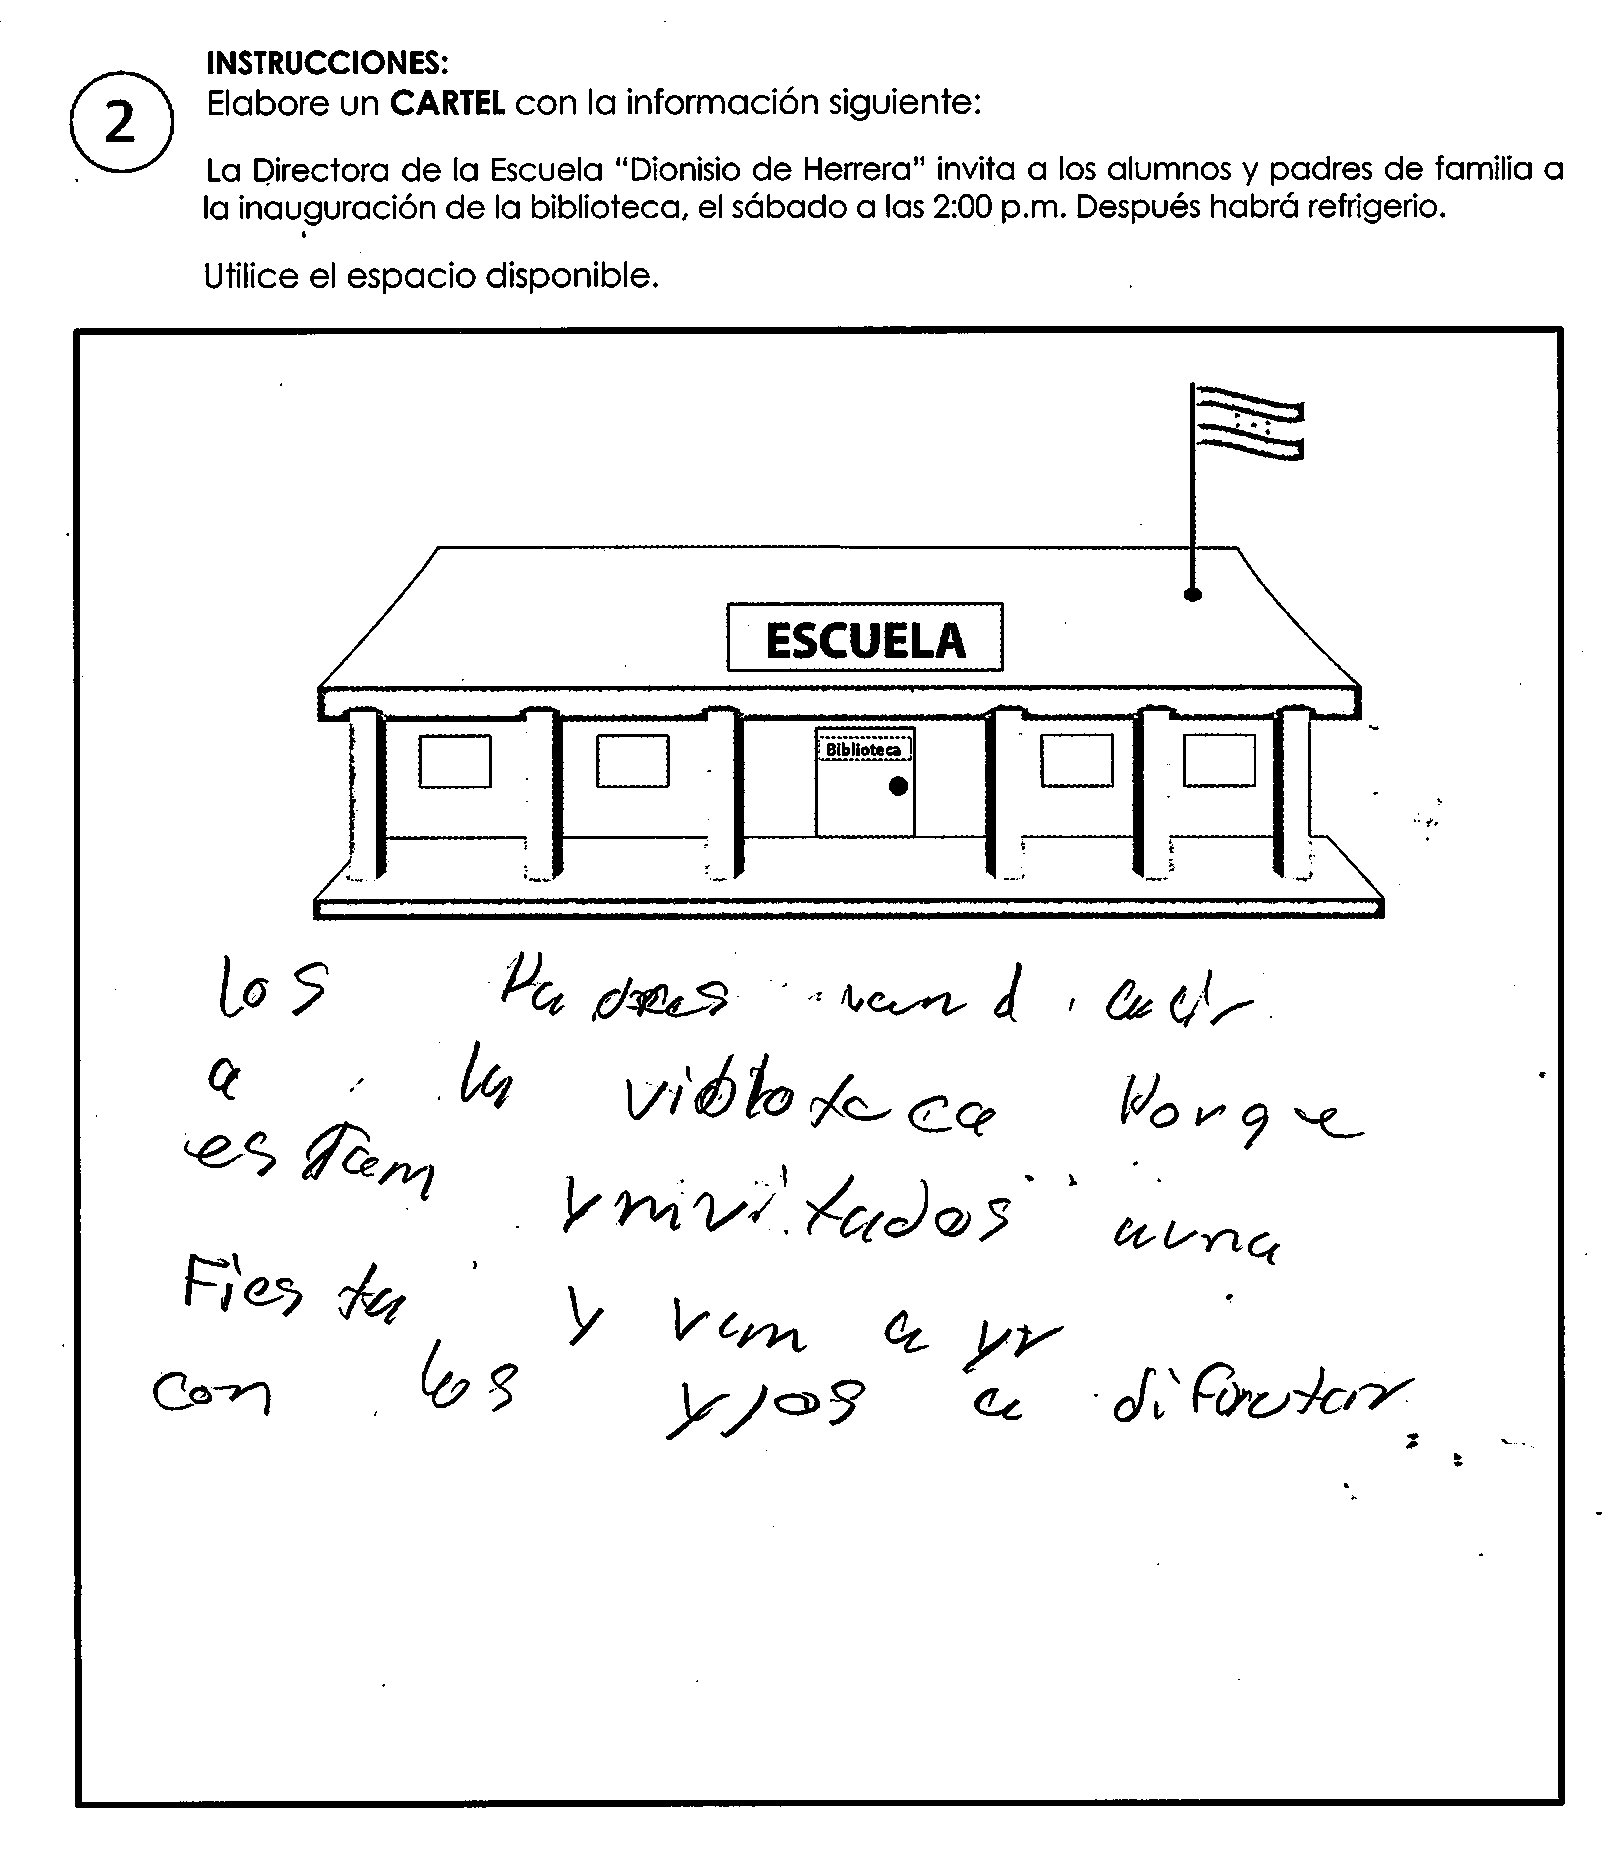 INSTRUCCIONES:
2
Elabore un CARTEL con la información siguiente:
La Directora de la Escuela "Dionisio de Herrera" invita a los alumnos y padres de familia a
la inauguración de la biblioteca, el sábado a las 2:00 p.m. Después habrá refrigerio.
Utilice el espacio disponible.
ESCUELA
Biblioteca
los Padres van
a la vibloteca Porque
estam ynivitados auna
Fiesta y vam a yr
con los yjos a difrutar